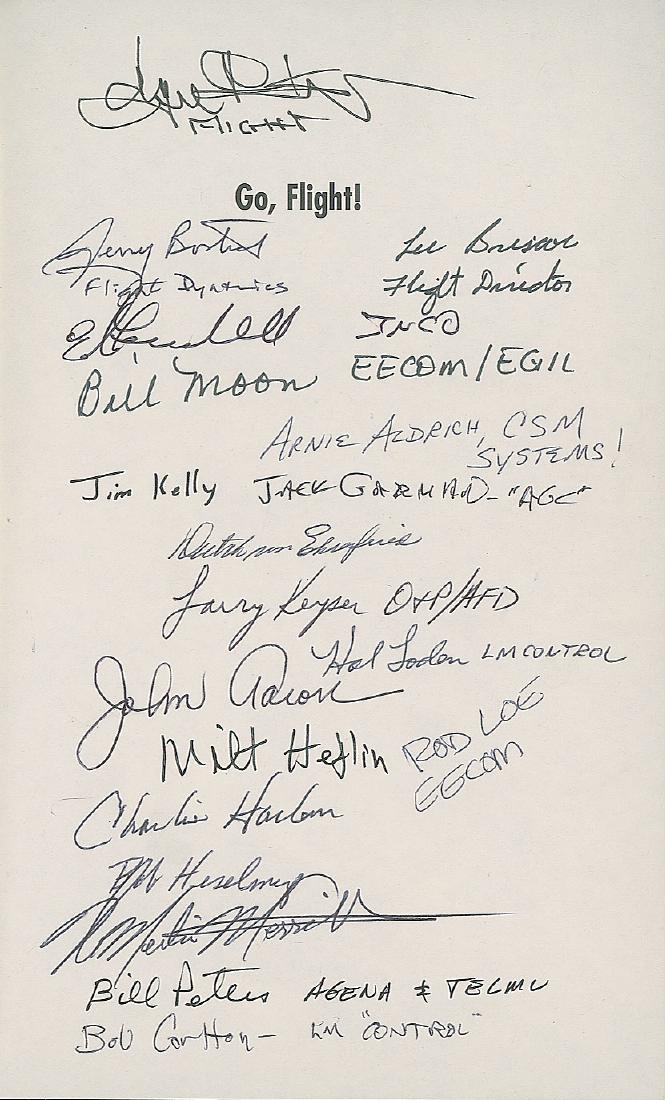 Gene Kranz
FLIGHT
Go, Flight!
Jerry Bostick Lee Briscoe
Flight Dynamics Flight Director
INCO
Bill Moon EECOM/EGIL
ARNIE ALDRICH, CSM
SYSTEMS!
Jim Kelly JACK GARMAN - "AGC"
Dutch von Ehrenfried
Larry Keyser O&P/AFD
Hal Loden LM CONTROL
John Aaron
Milt Heflin ROD LOE
EECOM
Charlie Harlan
Merlin Merritt
Bill Peters AGENA & TELMU
Bob Carlton - LM "CONTROL"